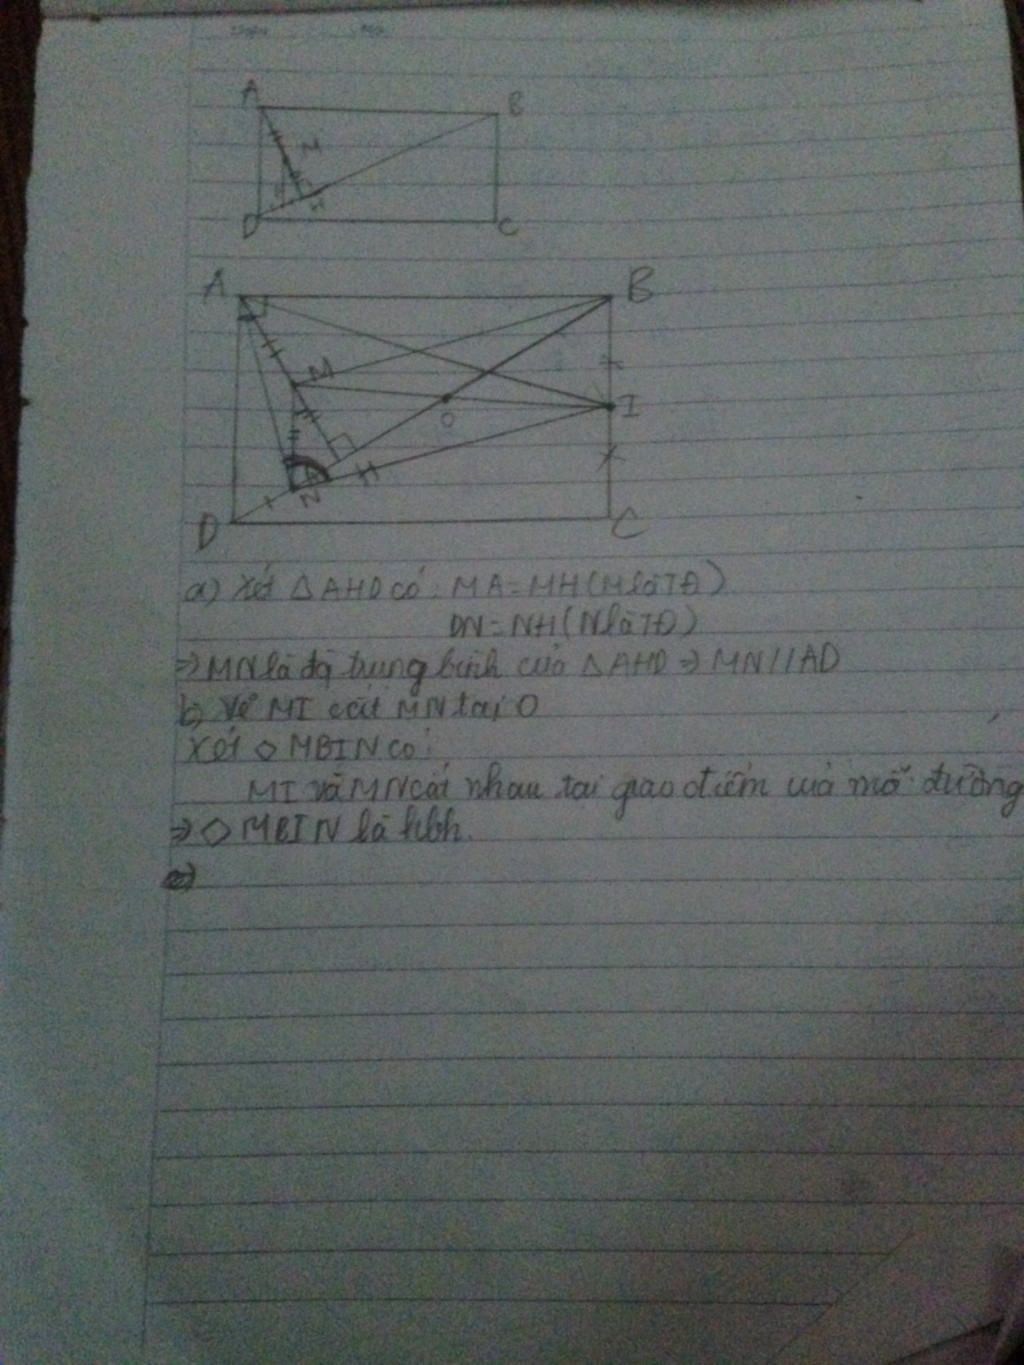 A
B
M
H
D
C
A
B
M
I
O
H
N
D
C
a) Xét △AHD có: MA=MH(M là TĐ)
DN=NH(N là TĐ)
=> MN là đg trung bình của △AHD => MN//AD
b) Vẽ MI cắt MN tại O
Xét ◇ MBIN có:
MI và MN cắt nhau tại giao điểm của mỗi đường
=> ◇ MBIN là hbh.